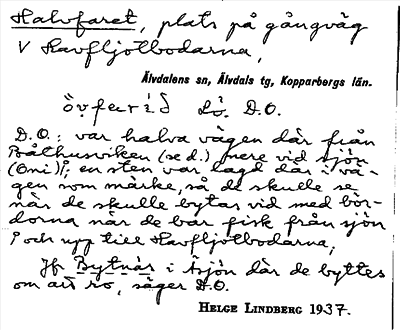 Halvfaret, plats på gångväg
V Havfljotbodarna,
Älvdalens sn, Älvdals tg, Kopparbergs län.
D.O.
D.O.: var halva vägen där från
Båthusviken (se d.) nere vid sjön
(Oni); en sten var lagd där i vä-
gen som märke, så de skulle se
när de skulle bytas vid med bör-
dorna när de bar fisk från sjön
och upp till Havfljotbodarna;
Jfr Bytnär i Åsjön där de byttes
om att ro, säger D.O.
HELGE LINDBERG 1937.